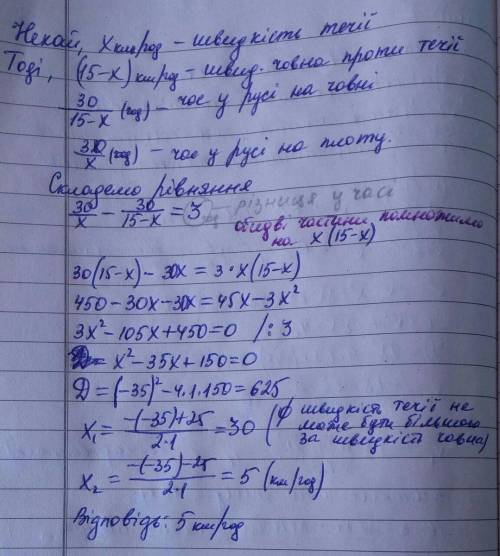 Нехай, x км/год – швидкість течії
Тоді, (15-x) км/год – швид. човна проти течії
30/(15-x) (год) – час у русі на човні
30/x (год) – час у русі на плоту.
Складемо рівняння
30/x - 30/(15-x) = 3 – різниця у часі
обидві частини помножимо
на x(15-x)
30(15-x) - 30x = 3·x(15-x)
450 - 30x - 30x = 45x - 3x²
3x² - 105x + 450 = 0 /:3
x² - 35x + 150 = 0
D = (-35)² - 4·1·150 = 625
x₁ = (-(-35)+25)/(2·1) = 30 (∅ швидкість течії не
може бути більшою
за швидкість човна)
x₂ = (-(-35)-25)/(2·1) = 5 (км/год)
Відповідь: 5 км/год